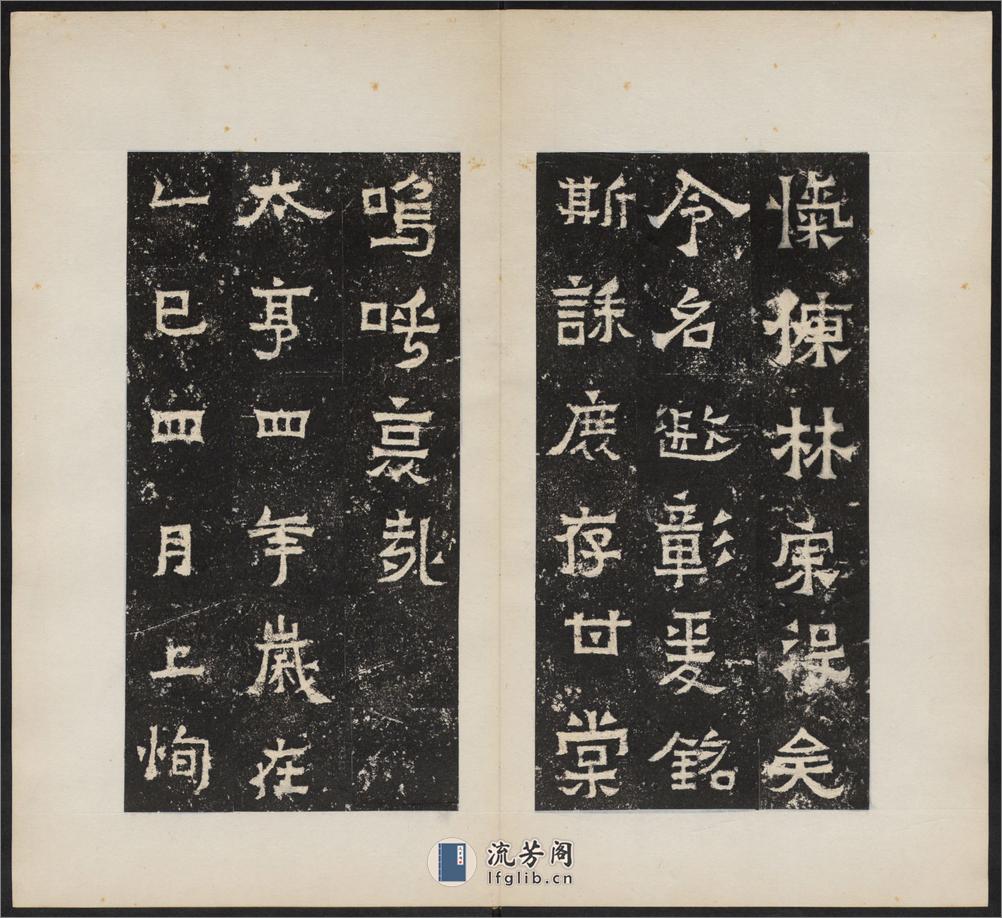 愾慷林宗没矣
令名遐彰爰銘
斯誄庶存甘棠
嗚呼哀哉
太亨四年歲在
乙巳四月上恂
流芳阁
lfglib.cn